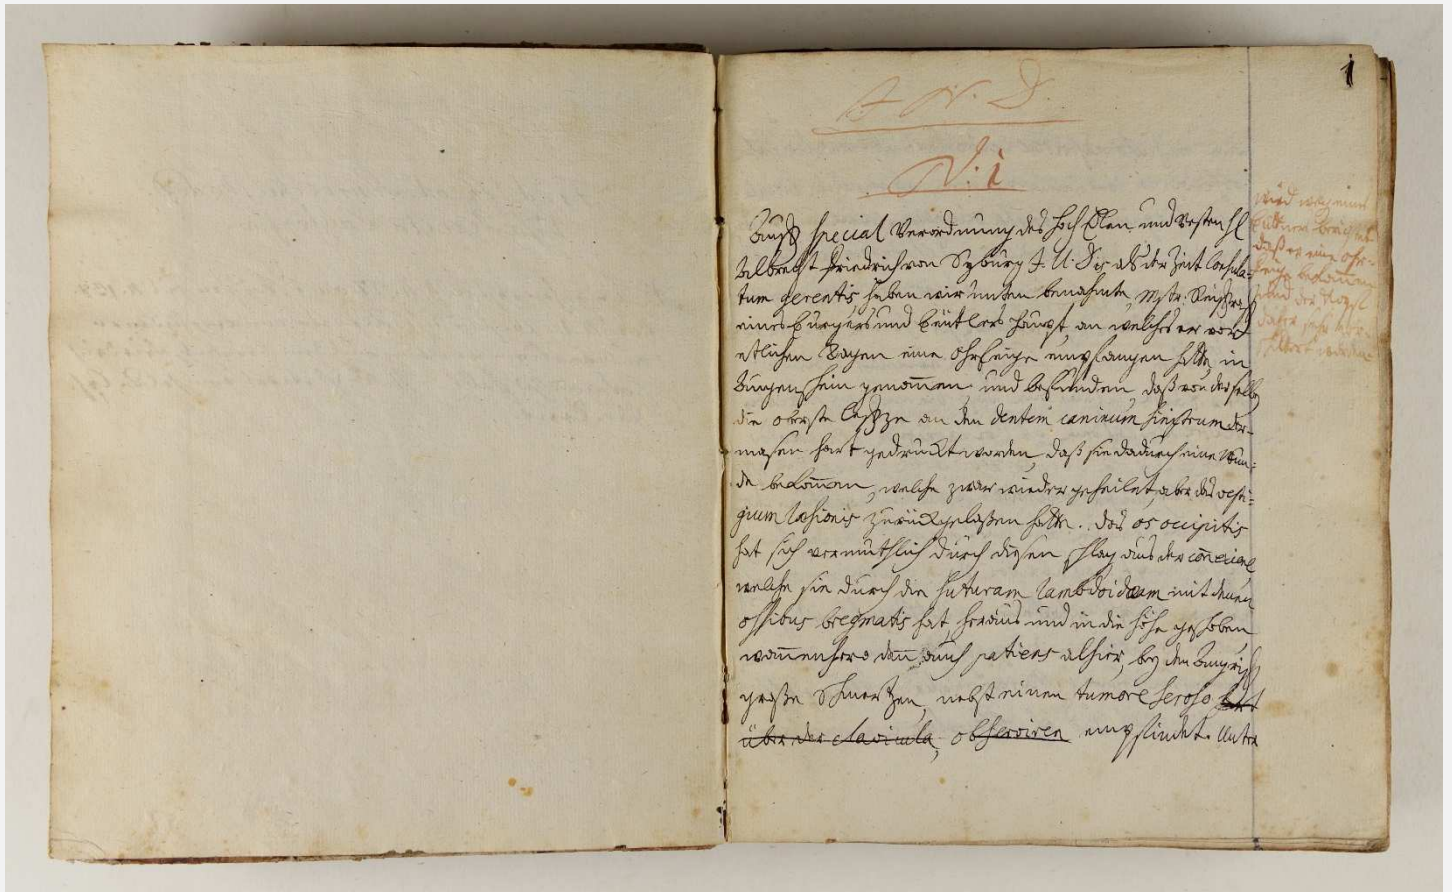 1
J. N. D.
N: 1
Auß special Verordnung des Hoch Edlen und Vesten H
Albrecht Friedrich von Syburg J. U. D. als der Zeit Consula-
tum gerentis haben wir unten benahmte, Mstr:
eines burgers und beütlers Haupt, an welches er vor
etlichen Tagen eine ohrfeige empfangen hatte, in
Augenschein genom̄en, und befunden, daß von derselben
die oberste leffze an den dentem caninum sinistrum der-
masen hart gedruckt worden, daß sie dadurch eine Wun-
de bekom̄en, welche zwar wieder geheilet, aber das vesti-
gium læsionis zurückgelaßen hatte. das os occipitis
hat sich vermuthlich durch diesen schlag aus der connexione
welche sie durch die suturam lambdoidæam mit denen
ossibus bregmatis hat, heraus und in die höhe gehoben,
wannenhero dann auch patiens alhier, bey dem Angriff
große Schmertzen, nebst einen tumore seroso
über der clavicula, observiren empfindet. Unter
wird wegen eines
daß er eine ohr-
feige bekom̄en
und der Kopf